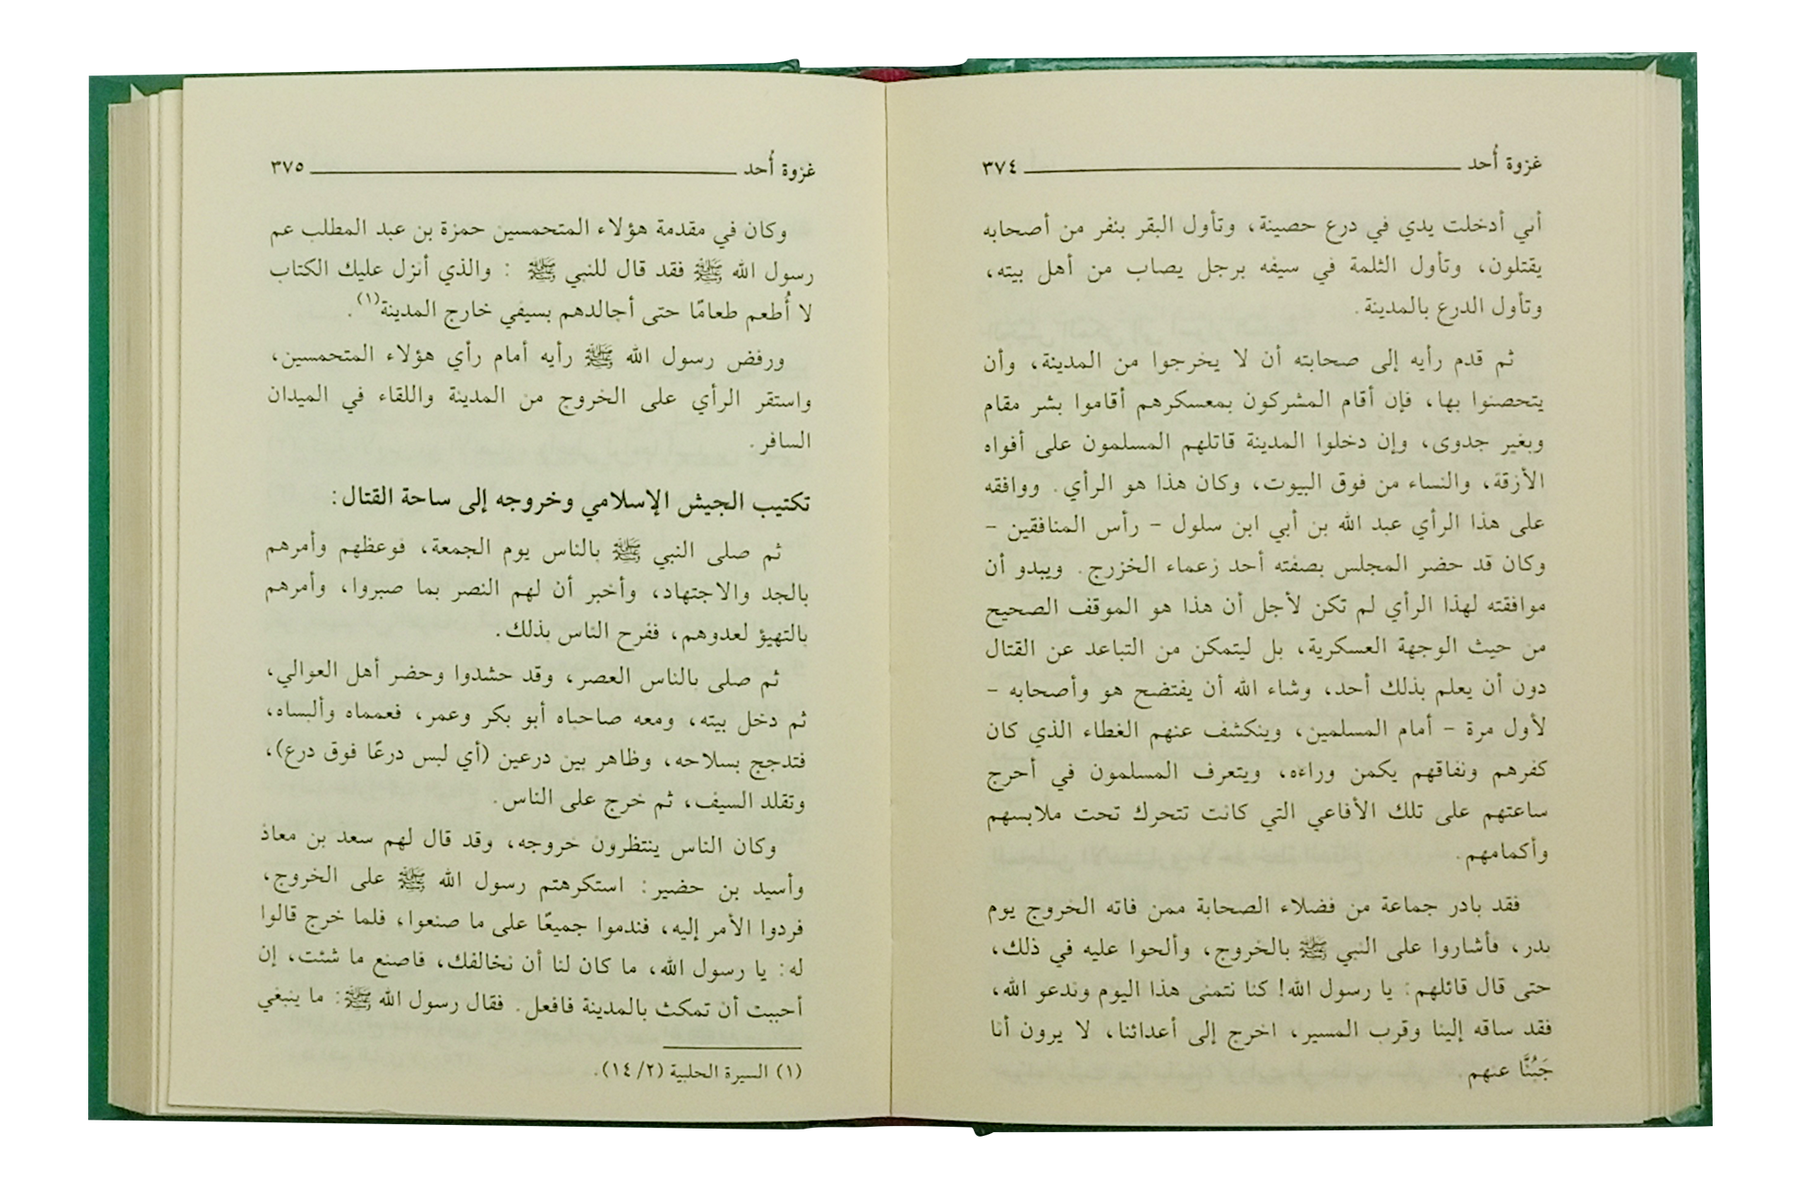 غزوة أُحد ٣٧٤
أني أدخلت يدي في درع حصينة، وتأول البقر بنفر من أصحابه
يقتلون، وتأول الثلمة في سيفه برجل يصاب من أهل بيته،
وتأول الدرع بالمدينة.
ثم قدم رأيه إلى صحابته أن لا يخرجوا من المدينة، وأن
يتحصنوا بها، فإن أقام المشركون بمعسكرهم أقاموا بشر مقام
وبغير جدوى، وإن دخلوا المدينة قاتلهم المسلمون على أفواه
الأزقة، والنساء من فوق البيوت، وكان هذا هو الرأي. ووافقه
على هذا الرأي عبد الله بن أبي ابن سلول - رأس المنافقين -
وكان قد حضر المجلس بصفته أحد زعماء الخزرج. ويبدو أن
موافقته لهذا الرأي لم تكن لأجل أن هذا هو الموقف الصحيح
من حيث الوجهة العسكرية، بل ليتمكن من التباعد عن القتال
دون أن يعلم بذلك أحد، وشاء الله أن يفتضح هو وأصحابه -
لأول مرة - أمام المسلمين، وينكشف عنهم الغطاء الذي كان
كفرهم ونفاقهم يكمن وراءه، ويتعرف المسلمون في أحرج
ساعتهم على تلك الأفاعي التي كانت تتحرك تحت ملابسهم
وأكمامهم.
فقد بادر جماعة من فضلاء الصحابة ممن فاته الخروج يوم
بدر، فأشاروا على النبي ﷺ بالخروج، وألحوا عليه في ذلك،
حتى قال قائلهم: يا رسول الله! كنا نتمنى هذا اليوم وندعو الله،
فقد ساقه إلينا وقرب المسير، اخرج إلى أعدائنا، لا يرون أنا
جَبُنَّا عنهم.
غزوة أُحد ٣٧٥
وكان في مقدمة هؤلاء المتحمسين حمزة بن عبد المطلب عم
رسول الله ﷺ فقد قال للنبي ﷺ : والذي أنزل عليك الكتاب
لا أُطعم طعامًا حتى أجالدهم بسيفي خارج المدينة(١).
ورفض رسول الله ﷺ رأيه أمام رأي هؤلاء المتحمسين،
واستقر الرأي على الخروج من المدينة واللقاء في الميدان
السافر.
تكتيب الجيش الإسلامي وخروجه إلى ساحة القتال:
ثم صلى النبي ﷺ بالناس يوم الجمعة، فوعظهم وأمرهم
بالجد والاجتهاد، وأخبر أن لهم النصر بما صبروا، وأمرهم
بالتهيؤ لعدوهم، ففرح الناس بذلك.
ثم صلى بالناس العصر، وقد حشدوا وحضر أهل العوالي،
ثم دخل بيته، ومعه صاحباه أبو بكر وعمر، فعمماه وألبساه،
فتدجج بسلاحه، وظاهر بين درعين (أي لبس درعًا فوق درع)،
وتقلد السيف، ثم خرج على الناس.
وكان الناس ينتظرون خروجه، وقد قال لهم سعد بن معاذ
وأسيد بن حضير: استكرهتم رسول الله ﷺ على الخروج،
فردوا الأمر إليه، فندموا جميعًا على ما صنعوا، فلما خرج قالوا
له: يا رسول الله، ما كان لنا أن نخالفك، فاصنع ما شئت، إن
أحببت أن تمكث بالمدينة فافعل. فقال رسول الله ﷺ: ما ينبغي
(١) السيرة الحلبية (١٤/٢).